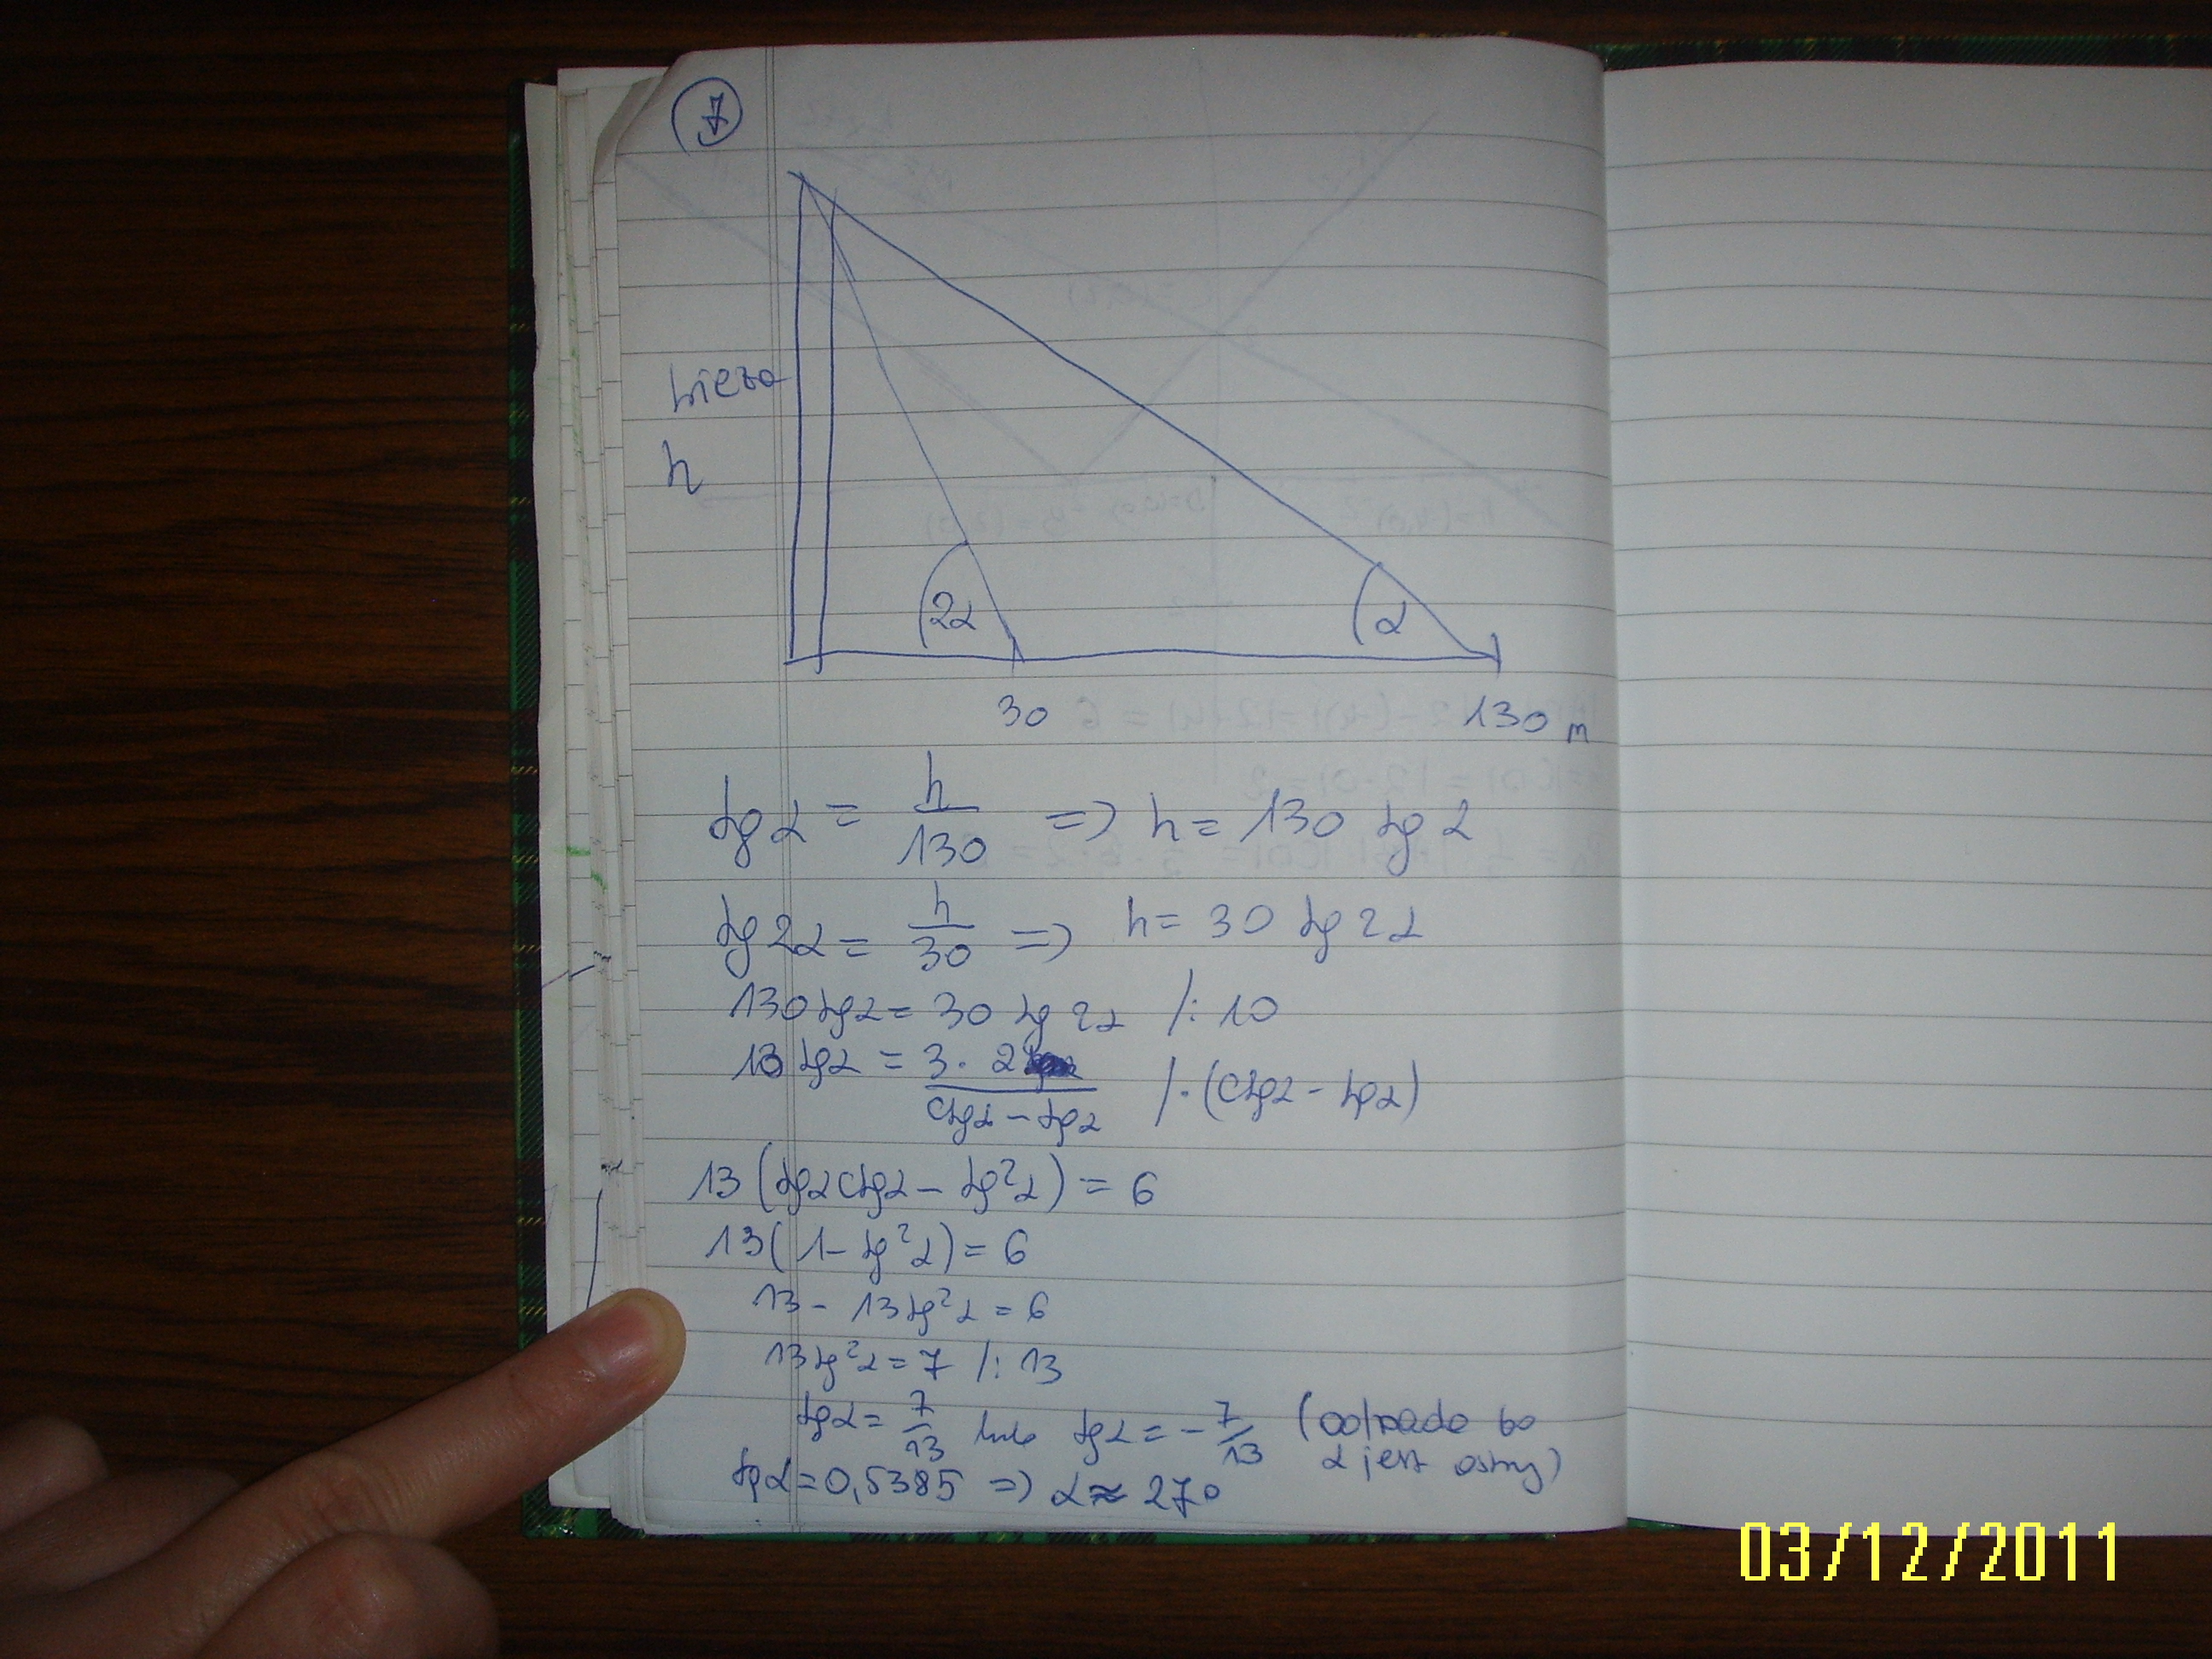 7
wieża
h
2α
α
30
130 m
tg α = h/130 => h = 130 tg α
tg 2α = h/30 => h = 30 tg 2α
130 tg α = 30 tg 2α /: 10
13 tg α = 3 · 2/(ctg α - tg α) /· (ctg α - tg α)
13 (tg α ctg α - tg² α) = 6
13 (1 - tg² α) = 6
13 - 13 tg² α = 6
13 tg² α = 7 /: 13
tg α = 7/13 lub tg α = - 7/13 (odpada bo
α jest ostry)
tg α = 0,5385 => α ≈ 27°
03/12/2011